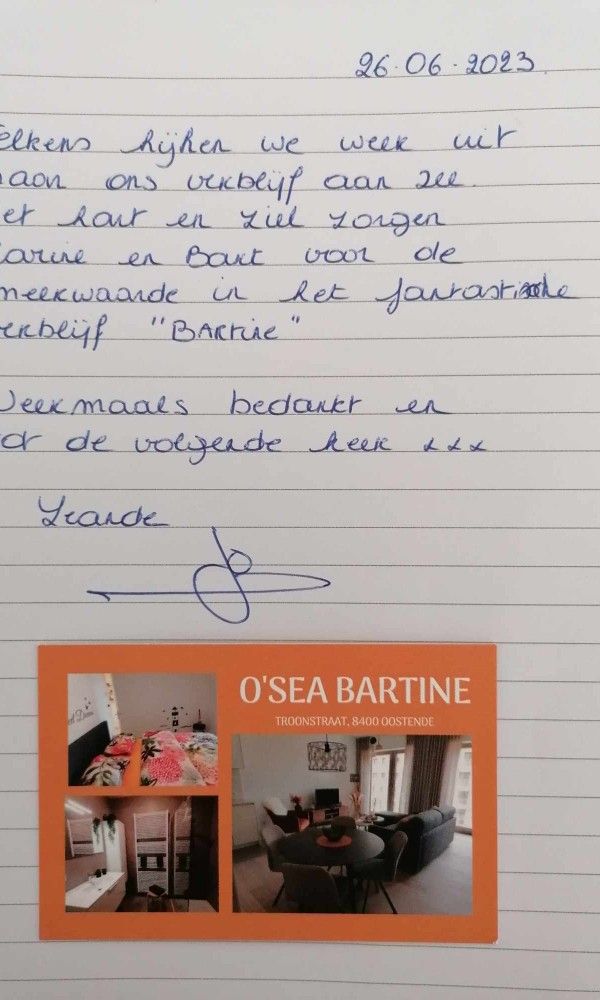 26.06.2023
elkens kijken we week uit
naar ons verblijf aan zee.
et hart en ziel zorgen
arine en Bart voor de
meerwaarde in het fantastische
verblijf "BARTine"
Veelmaals bedankt en
ot de volgende keer xxx
O'SEA BARTINE
TROONSTRAAT, 8400 OOSTENDE